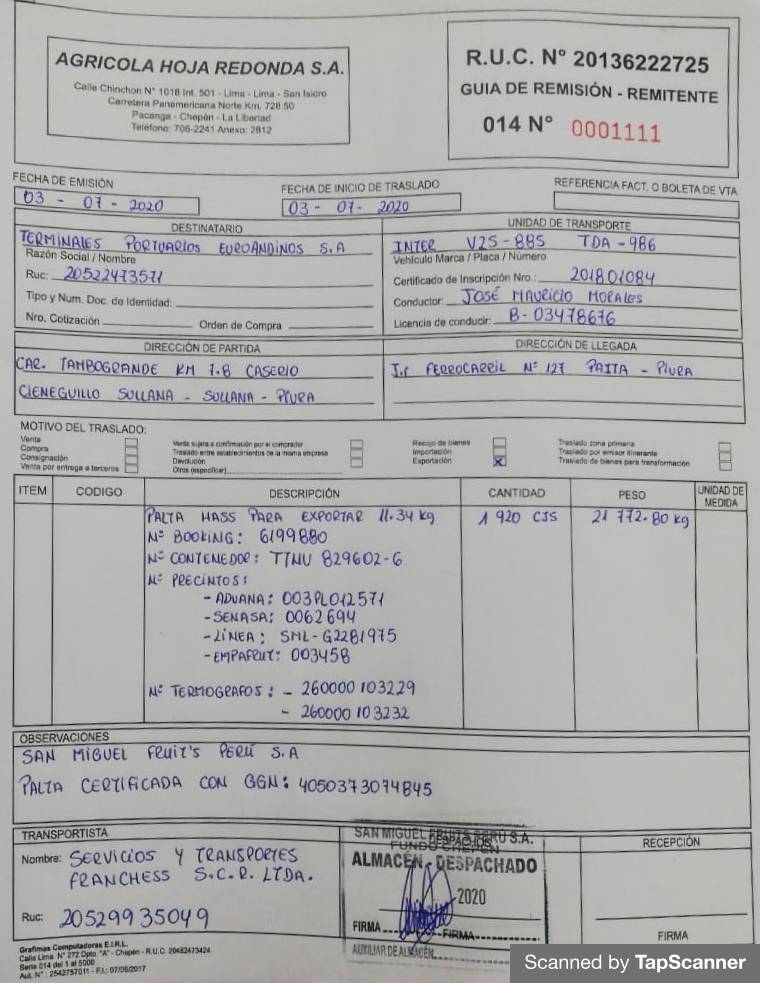 AGRICOLA HOJA REDONDA S.A.
Calle Chinchon N° 1018 Int. 501 - Lima - Lima - San Isidro
Carretera Panamericana Norte Km. 728.50
Pacanga - Chepén - La Libertad
Teléfono: 706-2241 Anexo: 2812
R.U.C. N° 20136222725
GUIA DE REMISIÓN - REMITENTE
014 N° 0001111
FECHA DE EMISIÓN
03 - 07 - 2020
FECHA DE INICIO DE TRASLADO
03 - 07 - 2020
REFERENCIA FACT. O BOLETA DE VTA.
DESTINATARIO
TERMINALES PORTUARIOS EUROANDINOS S.A
Razón Social / Nombre
Ruc: 20522473571
Tipo y Num. Doc. de Identidad:
Nro. Cotización Orden de Compra
UNIDAD DE TRANSPORTE
INTER V2S-885 TDA-986
Vehículo Marca / Placa / Número
Certificado de Inscripción Nro.: 201801084
Conductor: JOSÉ MAURICIO MORALES
Licencia de conducir: B-03478676
DIRECCIÓN DE PARTIDA
CAR. TAMBOGRANDE KM 7.8 CASERIO
CIENEGUILLO SULLANA - SULLANA - PIURA
DIRECCIÓN DE LLEGADA
J.r FERROCARRIL N° 127 PAITA - PIURA
MOTIVO DEL TRASLADO:
Venta
Compra
Consignación
Venta por entrega a terceros
Venta sujeta a confirmación por el comprador
Traslado entre establecimientos de la misma empresa
Devolución
Otros (especificar)
Recojo de bienes
Importación
Exportación X
Traslado zona primaria
Traslado por emisor itinerante
Traslado de bienes para transformación
ITEM CODIGO DESCRIPCIÓN CANTIDAD PESO UNIDAD DE MEDIDA
PALTA HASS PARA EXPORTAR 11.34 kg 1 920 CJS 21 772.80 kg
N° BOOKING: 6199880
N° CONTENEDOR: TTNU 829602-6
N° PRECINTOS:
- ADUANA: 003PL012571
- SENASA: 0062694
- LÍNEA: SML-G2281975
- EMPAFRUT: 003458
N° TERMOGRAFOS: - 260000 103229
- 260000 103232
OBSERVACIONES
SAN MIGUEL FRUIT'S PERÚ S.A
PALTA CERTIFICADA CON GGN: 4050373074845
TRANSPORTISTA
Nombre: SERVICIOS Y TRANSPORTES
FRANCHESS S.C.R. LTDA.
Ruc: 20529935049
SAN MIGUEL FRUITS PERU S.A.
FUNDO CHEPEN
ALMACÉN - DESPACHADO
2020
FIRMA
FIRMA
AUXILIAR DE ALMACÉN
RECEPCIÓN
FIRMA
Grafimas Computadoras E.I.R.L.
Calle Lima N° 272 Dpto. "A" - Chepén - R.U.C. 20482473424
Serie 014 del 1 al 5000
Aut. N°: 2542757011 - F.I.: 07/06/2017
Scanned by TapScanner